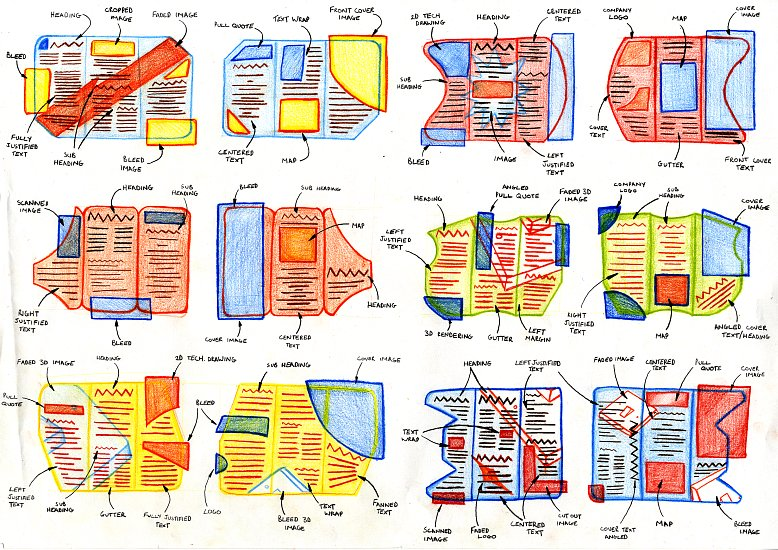 HEADING
CROPPED
IMAGE
FADED IMAGE
BLEED
FULLY
JUSTIFIED
TEXT
SUB
HEADING
BLEED
IMAGE
PULL QUOTE
TEXT WRAP
FRONT COVER
IMAGE
CENTERED
TEXT
MAP
2D TECH
DRAWING
HEADING
CENTERED
TEXT
SUB
HEADING
BLEED
IMAGE
LEFT
JUSTIFIED
TEXT
COMPANY
LOGO
MAP
COVER
IMAGE
COVER
TEXT
GUTTER
FRONT COVER
TEXT
SCANNED
IMAGE
HEADING
SUB
HEADING
RIGHT
JUSTIFIED
TEXT
BLEED
BLEED
SUB HEADING
MAP
HEADING
COVER IMAGE
CENTERED
TEXT
HEADING
ANGLED
PULL QUOTE
FADED 3D
IMAGE
LEFT
JUSTIFIED
TEXT
3D RENDERING
GUTTER
LEFT
MARGIN
COMPANY
LOGO
SUB
HEADING
COVER
IMAGE
RIGHT
JUSTIFIED
TEXT
MAP
ANGLED COVER
TEXT/HEADING
FADED 3D IMAGE
HEADING
2D TECH. DRAWING
PULL
QUOTE
LEFT
JUSTIFIED
TEXT
SUB
HEADING
GUTTER
FULLY JUSTIFIED
TEXT
SUB HEADING
COVER IMAGE
BLEED
LOGO
BLEED 3D
IMAGE
TEXT
WRAP
FANNED
TEXT
HEADING
LEFT JUSTIFIED
TEXT
TEXT
WRAP
SCANNED
IMAGE
FADED
LOGO
CENTERED
TEXT
CUT OUT IMAGE
FADED IMAGE
CENTERED
TEXT
PULL
QUOTE
COVER
IMAGE
COVER TEXT
ANGLED
MAP
BLEED
IMAGE